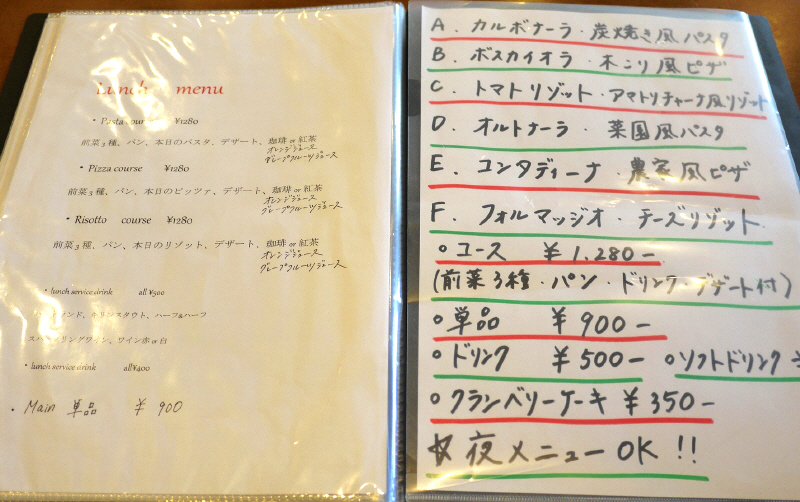 Lunch menu
・Pasta course ¥1280
前菜3種、パン、本日のパスタ、デザート、珈琲or紅茶
オレンジジュース
グレープフルーツジュース
・Pizza course ¥1280
前菜3種、パン、本日のピッツァ、デザート、珈琲or紅茶
オレンジジュース
グレープフルーツジュース
・Risotto course ¥1280
前菜3種、パン、本日のリゾット、デザート、珈琲or紅茶
オレンジジュース
グレープフルーツジュース
・lunch service drink all¥500
キリンスタウト、ハーフ&ハーフ
スパークリングワイン、ワイン赤or白
・lunch service drink all¥400
・Main 単品 ¥900
A. カルボナーラ・炭焼き風パスタ
B. ボスカイオラ・木こり風ピザ
C. トマトリゾット・アマトリチャーナ風リゾット
D. オルトナーラ・菜園風パスタ
E. コンタディーナ・農家風ピザ
F. フォルマッジオ・チーズリゾット
○コース ¥1.280-
(前菜3種・パン・ドリンク・デザート付)
○単品 ¥900-
○ドリンク ¥500- ○ソフトドリンク
○クランベリーケーキ ¥350-
☆夜メニューOK!!